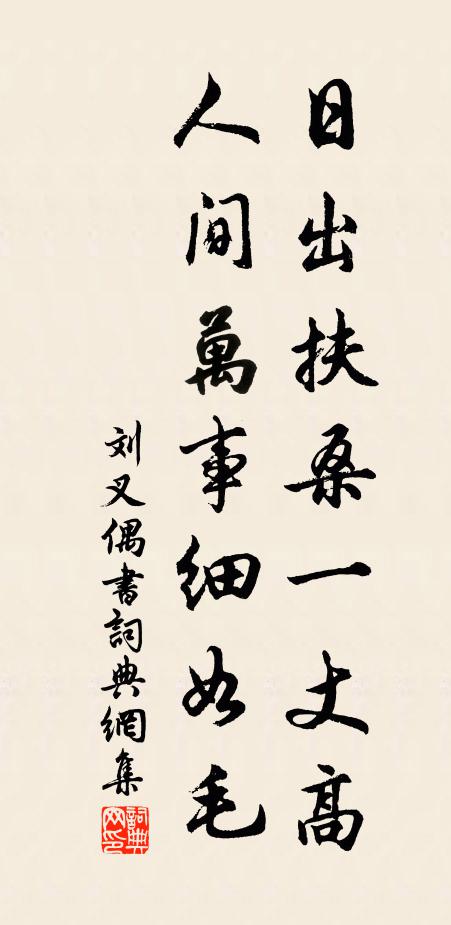 日出扶桑一丈高
人间萬事细如毛
刘叉偶書詞典網集
詞典网印